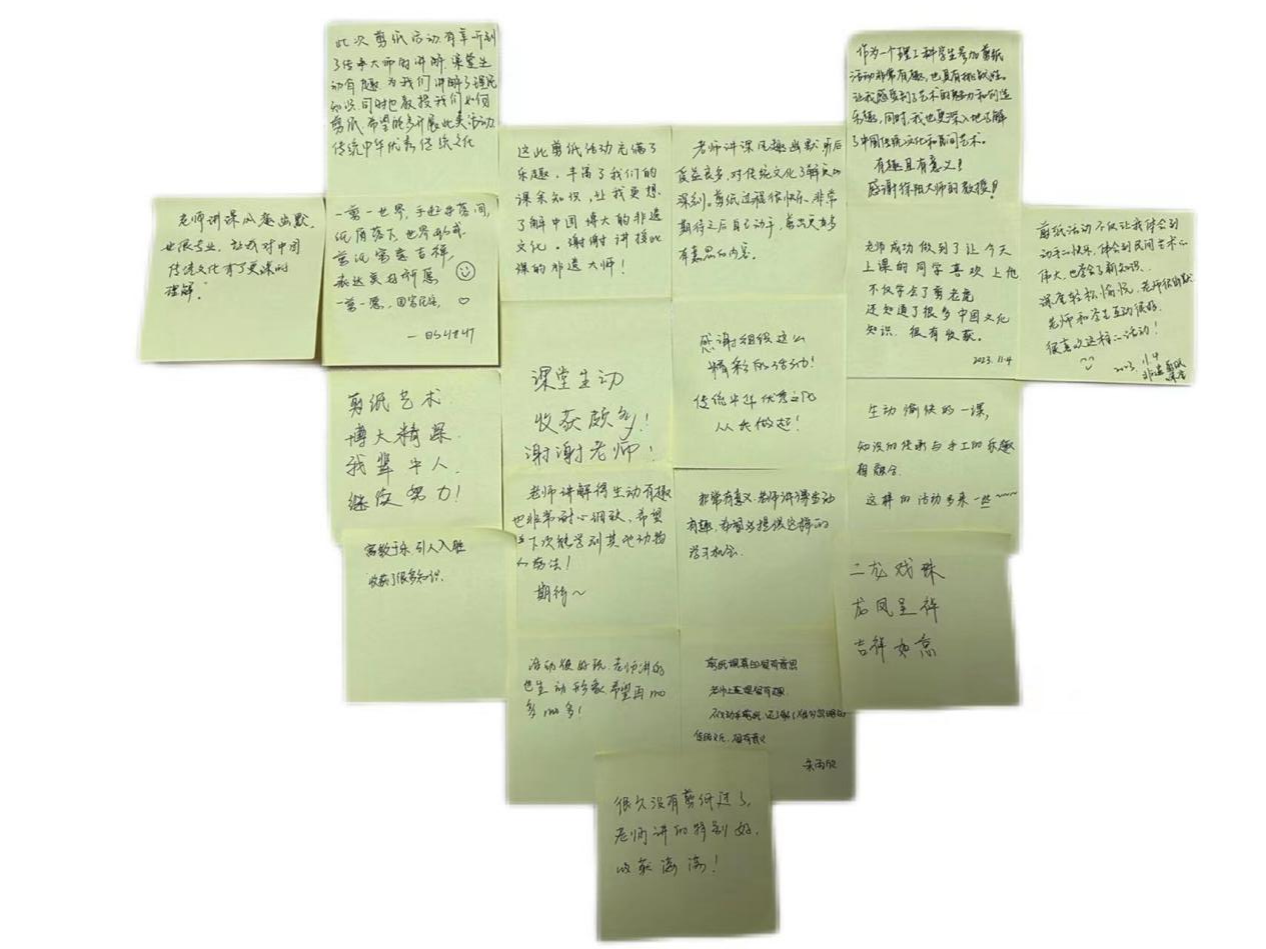 此次剪纸活动有幸听到
了传承大师的讲解,课堂生
动有趣,为我们讲解了理论
知识,同时也教授我们如何
剪纸,希望能多开展此类活动
传统中华优秀传统文化
作为一个理工科学生参加剪纸
活动非常有趣,也具有挑战性。
让我感受到了艺术的魅力和创造
乐趣,同时,我也更深入地了解
了中国传统文化和民间艺术。
有趣且有意义!
感谢徐阳大师的教授!
这此剪纸活动充满了
乐趣,丰富了我们的
课余知识,让我更想
了解中国博大的非遗
文化。谢谢讲授此
课的非遗大师!
老师讲课风趣幽默,听后
受益良多,对传统文化了解更加
深刻。剪纸过程很快乐,非常
期待之后自己动手,剪出更多
有意思的内容。
老师讲课风趣幽默,
也很专业,让我对中国
传统文化有了更深的
理解。
一剪一世界,手起
纸屑落下,世界
剪纸寓意吉祥,
表达美好祈愿
一剪一愿,国富民安。
老师成功做到了让今天
上课的同学喜欢上他
不仅学会了剪老虎
还知道了很多中国文化
知识,很有收获。
2023.11.4
剪纸活动不仅让我体会到
动手的快乐,体会到民间艺术的
伟大,也学会了新知识。
课堂轻松愉悦,老师很幽默
老师和学生互动很好。
很喜欢这样的活动!
2023.11.4
非遗剪纸
课堂
剪纸艺术
博大精深
我辈中人
继续努力!
课堂生动
收获颇多!
谢谢老师!
感谢组织这么
精彩的活动!
传统中华优秀文化
从我做起!
生动愉快的一课,
知识的传承与手工的乐趣
相融合.
这样的活动多来一些~~~
寓教于乐,引人入胜
收获了很多知识.
老师讲解得生动有趣
也非常耐心细致,希望
下次能学到其他动物
的剪法!
期待~
非常有意义,老师讲课生动
有趣,希望多提供这样的
学习机会.
二龙戏珠
龙凤呈祥
吉祥如意
活动很好玩,老师讲的
也生动形象,希望再 mo
多 mo 多!
剪纸 很有意思
老师上课很有趣
传统文化,很有意义
很久没有剪纸过了,
老师讲的特别好,
收获满满!